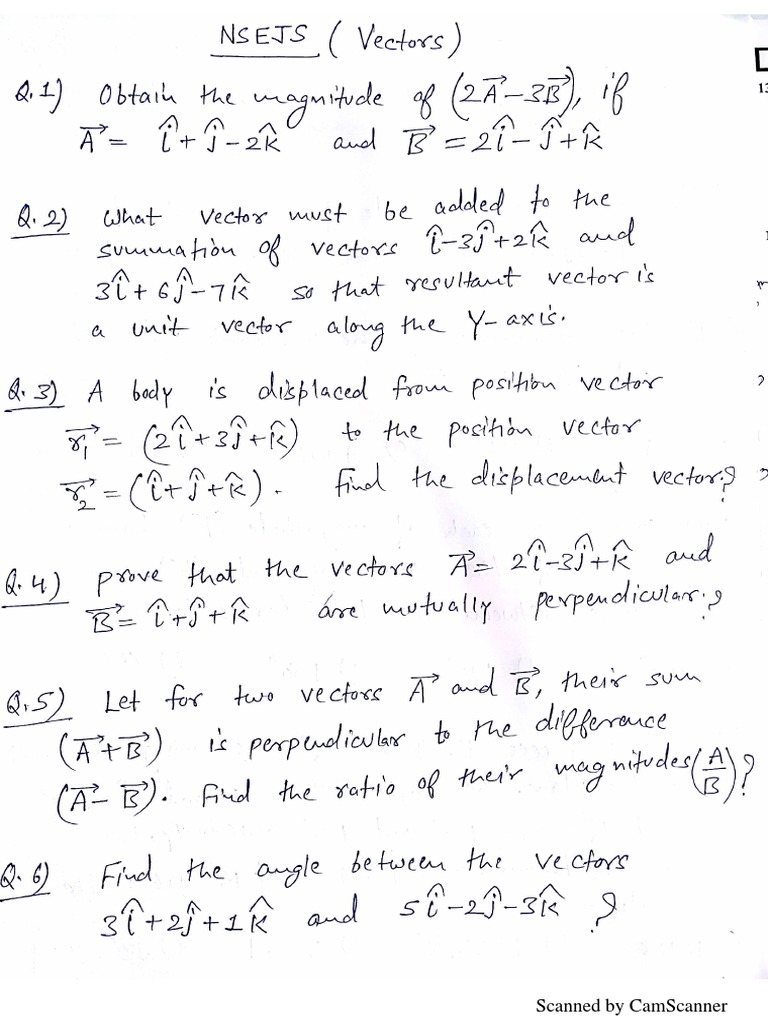 NSEJS (Vectors)
Q.1) Obtain the magnitude of (2A⃗ - 3B⃗), if
A⃗ = î + ĵ - 2k̂ and B⃗ = 2î - ĵ + k̂
Q.2) What vector must be added to the
summation of vectors î - 3ĵ + 2k̂ and
3î + 6ĵ - 7k̂ so that resultant vector is
a unit vector along the Y-axis.
Q.3) A body is displaced from position vector
r⃗₁ = (2î + 3ĵ + k̂) to the position vector
r⃗₂ = (î + ĵ + k̂). Find the displacement vector?
Q.4) prove that the vectors A⃗ = 2î - 3ĵ + k̂ and
B⃗ = î + ĵ + k̂ are mutually perpendicular?
Q.5) Let for two vectors A⃗ and B⃗, their sum
(A⃗ + B⃗) is perpendicular to the difference
(A⃗ - B⃗). Find the ratio of their magnitudes (A/B)?
Q.6) Find the angle between the vectors
3î + 2ĵ + 1k̂ and 5î - 2ĵ - 3k̂ ?
Scanned by CamScanner